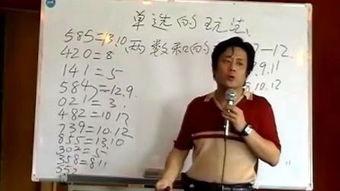 单选的玩法
585=13.10
两数和的
420=8
141=5
584=12.9
021=3
482=10.12
739=10.12
855=13.10
302=5
358=8.11